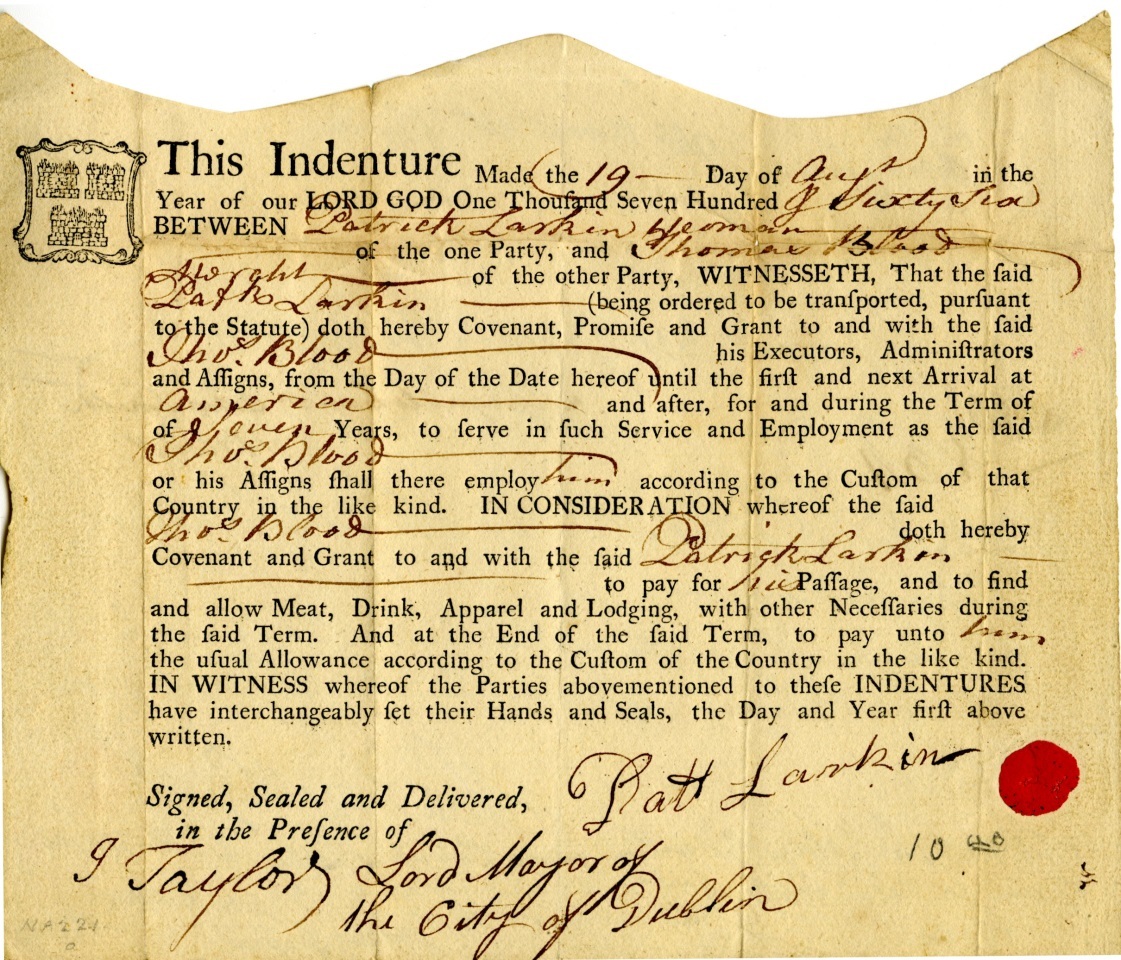 This Indenture Made the 19 Day of Augst in the
Year of our LORD GOD One Thouſand Seven Hundred & Sixty Six
BETWEEN Patrick Larkin Yeoman
of the one Party, and Thomas Blood
Mercht of the other Party, WITNESSETH, That the ſaid
Patk Larkin (being ordered to be tranſported, purſuant
to the Statute) doth hereby Covenant, Promiſe and Grant to and with the ſaid
Thos. Blood his Executors, Adminiſtrators
and Aſſigns, from the Day of the Date hereof until the firſt and next Arrival at
America and after, for and during the Term of
of Seven Years, to ſerve in ſuch Service and Employment as the ſaid
Thos. Blood
or his Aſſigns ſhall there employ him according to the Cuſtom of that
Country in the like kind. IN CONSIDERATION whereof the ſaid
Thos Blood doth hereby
Covenant and Grant to and with the ſaid Patrick Larkin
to pay for his Paſſage, and to find
and allow Meat, Drink, Apparel and Lodging, with other Neceſſaries during
the ſaid Term. And at the End of the ſaid Term, to pay unto him
the uſual Allowance according to the Cuſtom of the Country in the like kind.
IN WITNESS whereof the Parties abovementioned to theſe INDENTURES
have interchangeably ſet their Hands and Seals, the Day and Year firſt above
written.
Patt Larkin
Signed, Sealed and Delivered,
in the Preſence of
10
J Taylor Lord Mayor of
the City of Dublin